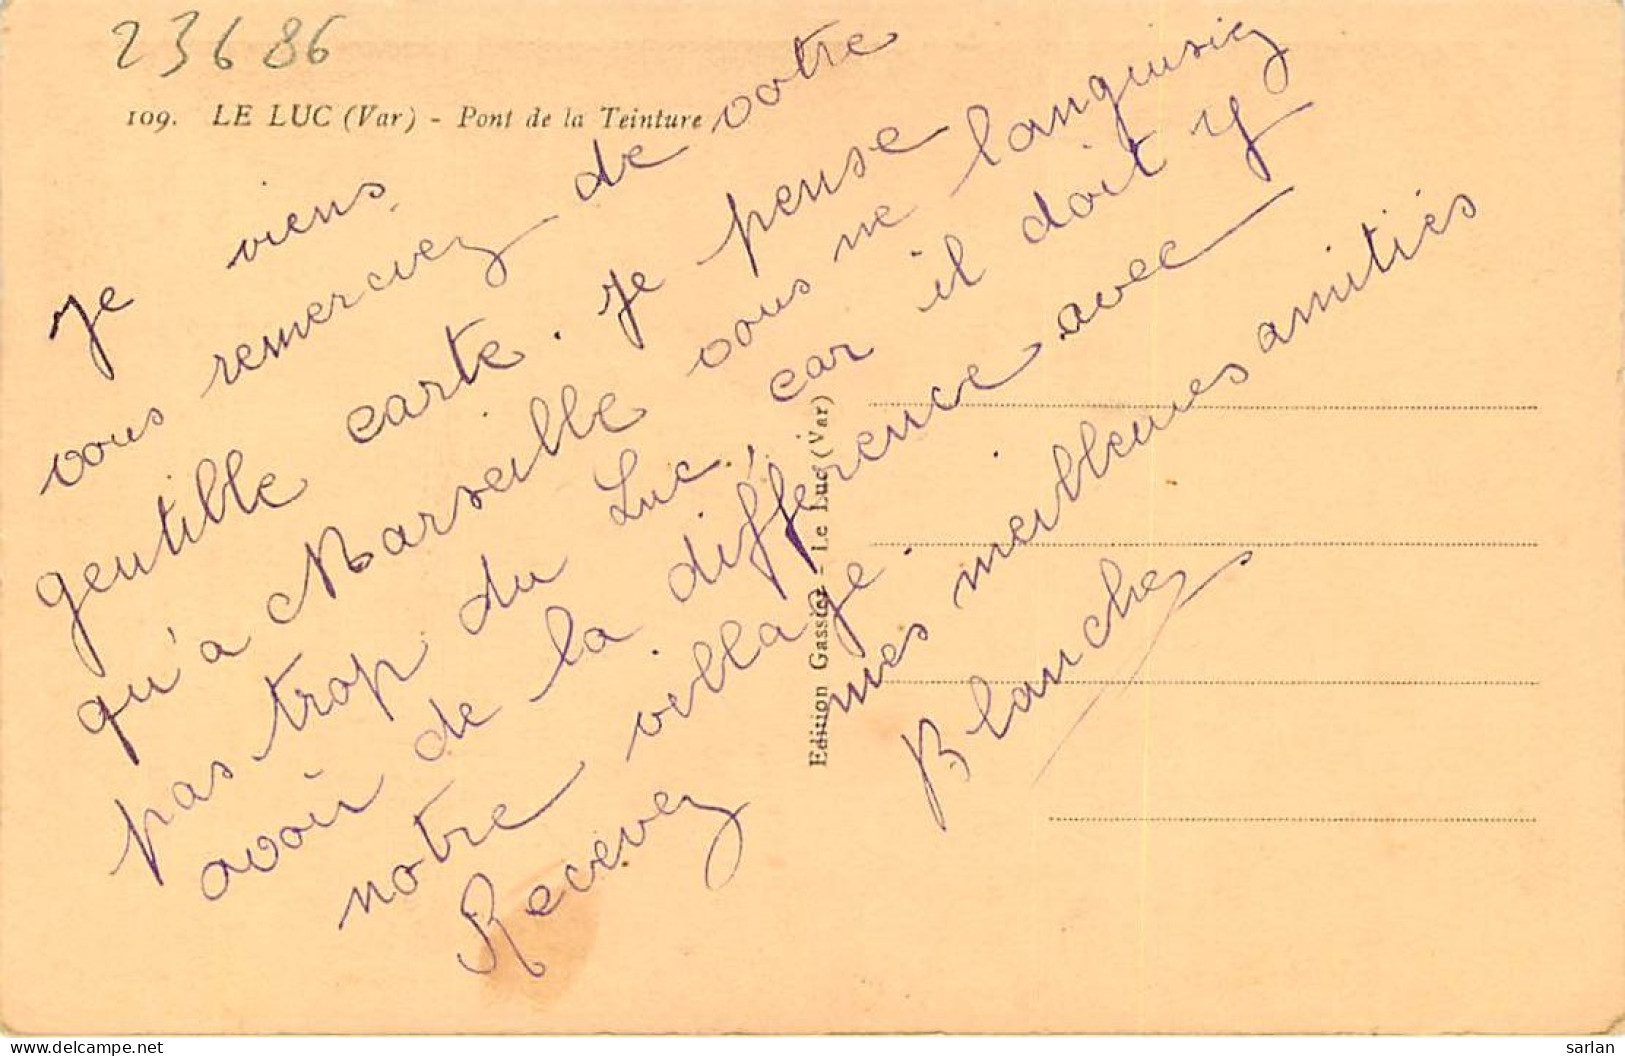 23686
109. LE LUC (Var) - Pont de la Teinture
Je viens
vous remerciez de votre
gentille carte. Je pense
qu'à Marseille vous ne languisiez
pas trop du Luc, car il doit y
avoir de la différence avec
notre village.
Recevez mes meilleures amitiés
Blanche
Edition Gassier - Le Luc (Var)
www.delcampe.net
sarlan